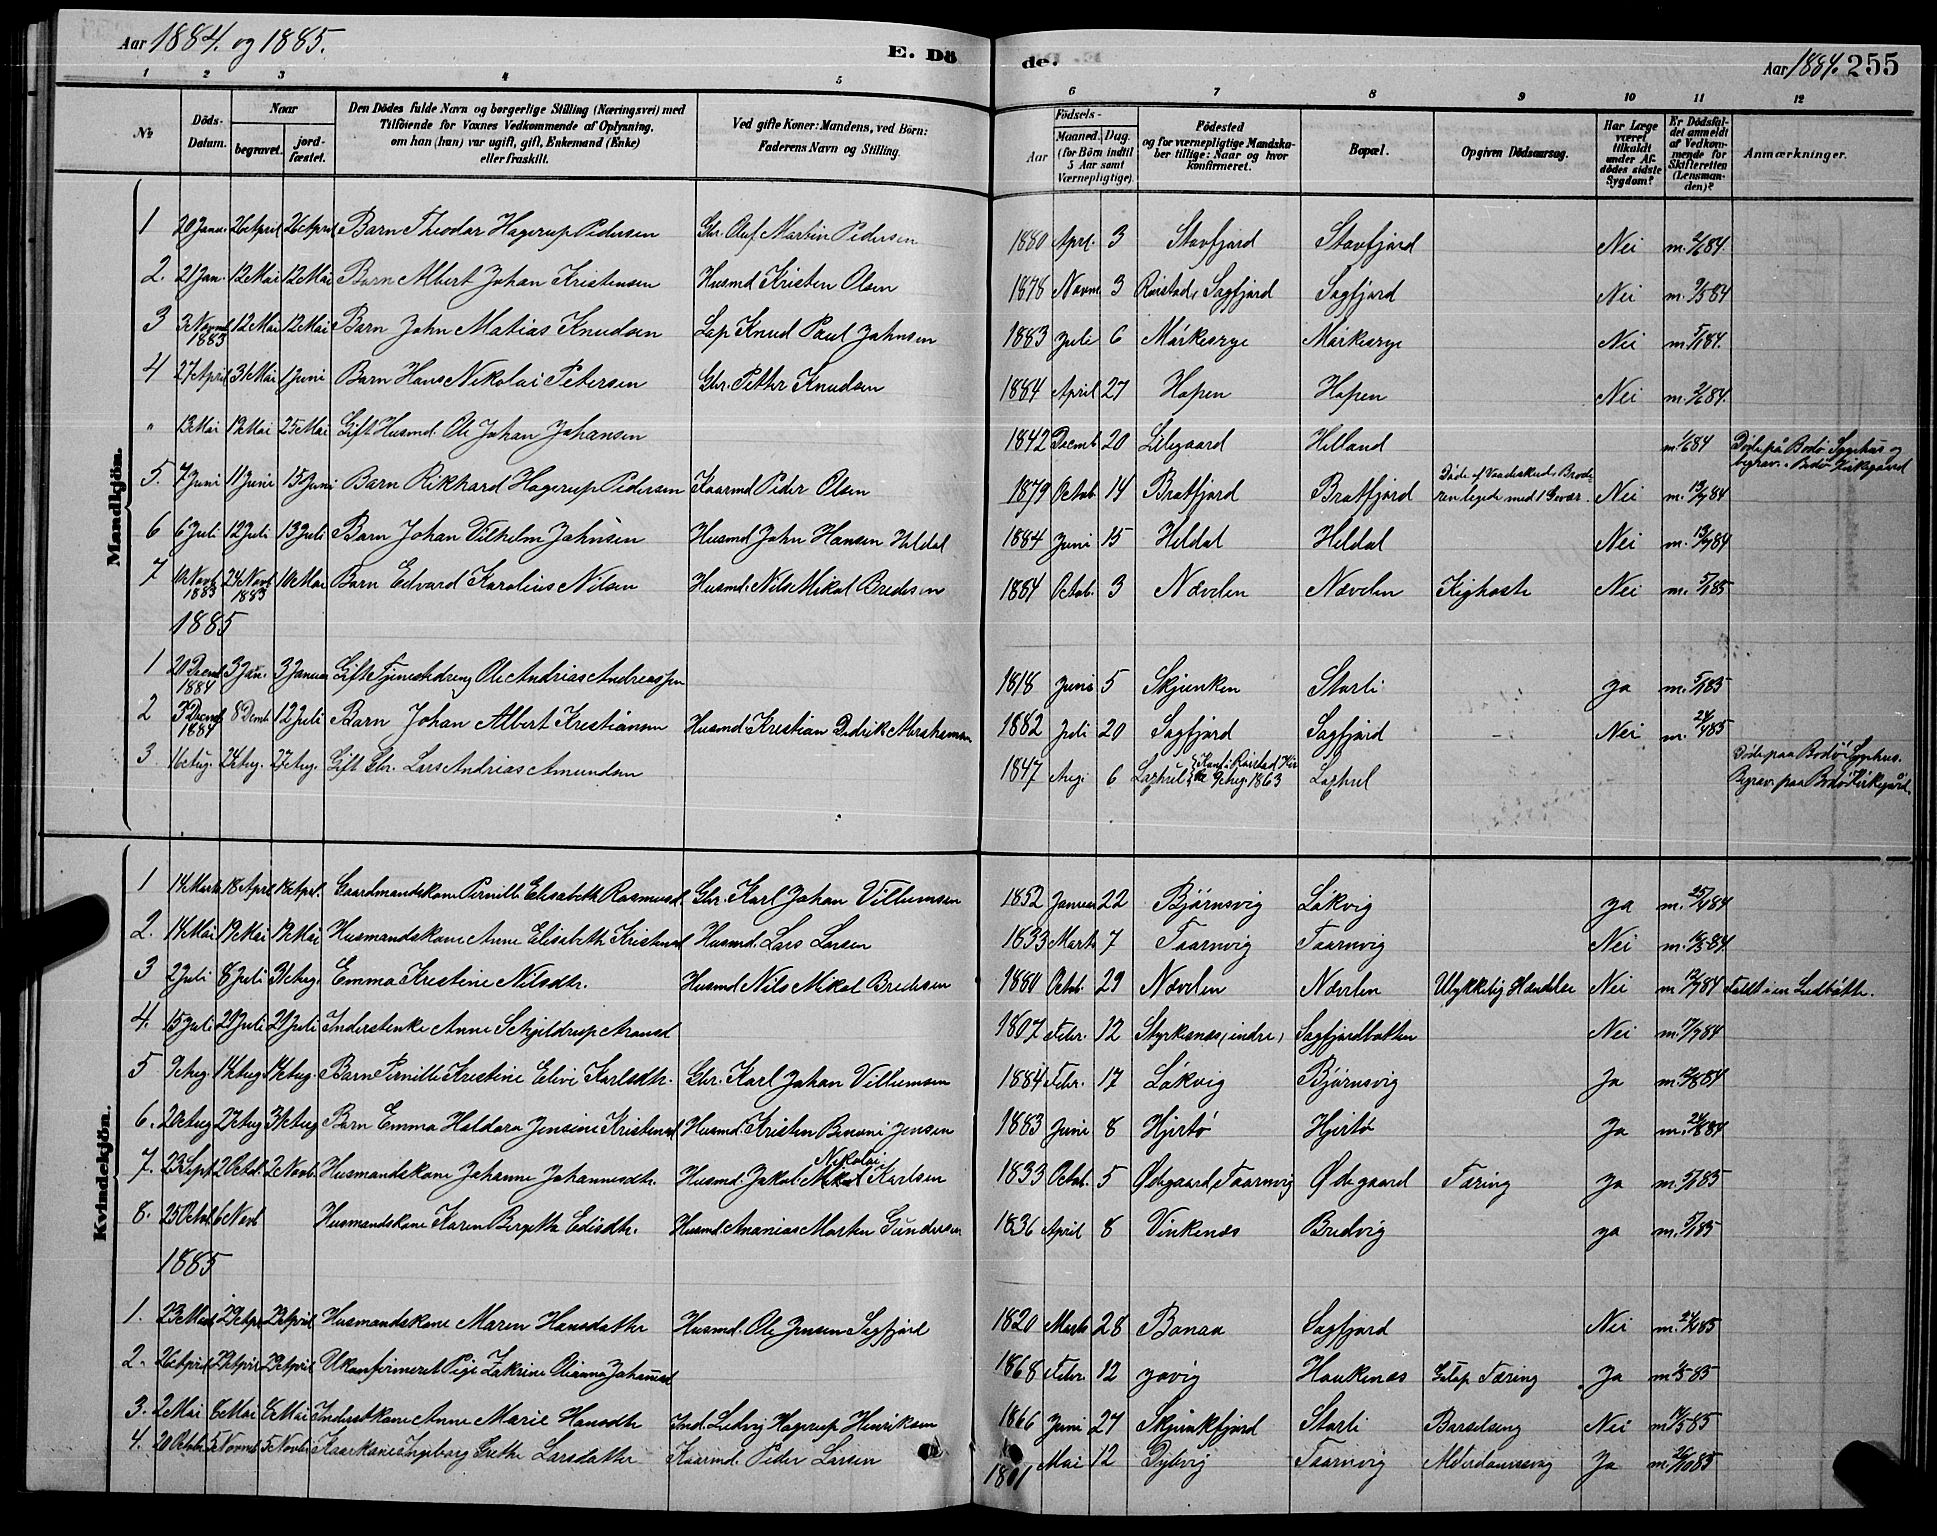 Aar 1884. og 1885.
E. Dö
de.
Aar 1884. 255
1 2 3 4 5 6 7 8 9 10 11 12
No
Döds-Datum.
Naar
begravet.
jordfæstet.
Den Dödes fulde Navn og borgerlige Stilling (Næringsvei) med
Tilföiende for Voxnes Vedkommende af Oplysning,
om han (hun) var ugift, gift, Enkemand (Enke)
eller fraskilt.
Ved gifte Koner: Mandens, ved Börn:
Faderens Navn og Stilling.
Födsels-
Aar
Maaned. Dag.
(for Börn indtil
5 Aar samt
Værnepligtige).
Födested
og for værnepligtige Mandska-
ber tillige: Naar og hvor
konfirmeret.
Bopæl.
Opgiven Dödsaarsag.
Har Læge
været
tilkaldt
under Af-
dödes sidste
Sygdom?
Er Dödsfal-
det anmeldt
af Vedkom-
mende for
Skifteretten
(Lensman-
den)?
Anmærkninger.
Mandkjön.
1 20 Janu. 26 April 26 April Barn Theodor Hagerup Pedersen Gbr. Oluf Martin Pedersen 1880 Aprl. 3 Stavfjord Stavfjord Nei
2. 21 Jan. 12 Mai 12 Mai Barn Albert Johan Kristensen Husmd Kristen Olsen 1878 Novm 3 Røistad, Sagfjord Sagfjord Nei
3 3 Novmb 1883 12 Mai 12 Mai Barn John Matias Knudsen Lap Knud Paul Johnsen 1883 Juli 6 Mørkesvye Mørkesvye Nei
4 27 April 31 Mai 1 Juni Barn Hans Nikolai Petersen Gbr. Petter Knudsen 1884 April 27 Hopen Hopen Nei
" 13 Mai 19 Mai 25 Mai Gift Husmd. Ole Johan Johansen 1842 Decmb 20 Lilegaard Helland Døde på Bodø Sygehus og
begrav. Bodø Kirkegaard
5. 7 Juni 11 Juni 15 Juni Barn Rikhard Hagerup Pedersen Kaarmd Peder Olsen 1879 Octob. 14 Bratfjord Bratfjord Døde af Vaadeskud. Brode-
ren legede med 1 Gevær. Nei m. 13/7 84
6 6 Juli 12 Juli 13 Juli Barn Johan Vilhelm Johnsen Husmd John Hansen Heldal 1884 Juni 15 Heldal Heldal Nei m. 13/7 84
7 10 Novb 1883 24 Novb 1883 18 Mai Barn Edvard Karolius Nilsen Husmd. Nils Mikal Bredesen 1884 Octob. 3 Nævelen Nævelen Kighoste Nei m. 5/1 85
1885
1 20 Decmb 1884 3 Jan. 3 Januar Gift Tjenestedreng Ole Andrias Andreassen 1818 Juni 5 Skjunken Storli Ja m. 5/1 85
2 3 Decmb 1884 8 Decmb 12 Juli Barn Johan Albert Kristiansen Husmd. Kristian Didrik Abrahamsen 1882 Juli 20 Sagfjord Sagfjord Nei
3 16 Aug. 24 Aug. 27 Aug. Gift Gbr. Lars Andrias Amundsen 1847 Aug 6 Laxhul Laxhul Døde paa Bodø Sygehus.
Begrav. paa Bodø Kirkegård.
Kvindekjön.
1 14 Marts 18 April 18 Aprl. Gaardmandskone Pernille Elisabeth Rasmusd. Gbr. Karl Johan Villumsen 1852 Januar 22 Bjørnsvig Løkvig Ja m. 25/4 84
2. 14 Mai 19 Mai 19 Mai Husmandskone Anne Elisabeth Kristensd Husmd. Lars Larsen 1833 Marts 7 Taarnvig Taarnvig Nei
3 2 Juli 8 Juli 31 Aug. Emma Kristine Nilsdtr. Husmd Nils Mikal Bredesen 1880 Octob. 29 Nævelen Nævelen Ulykkelig Hændelse Nei Faldt i en Ludbøtte.
4. 15 Juli 20 Juli 20 Juli Inderstenke Anne Schjeldrup Aronsd 1807 Febr. 12 Styrkesnæs, indre, Sagfjordbotten Nei
5 9 Aug. 14 Aug. 14 Aug. Barn Pernille Kristine Elive Karlsdtr. Gbr. Karl Johan Villumsen 1884 Febr. 17 Løkvig Bjørnsvig Ja
6. 20 Aug 27 Aug 31 Aug Barn Emma Haldora Jensine Kristensd Husmd. Kristen Benoni Jensen 1883 Juni 8 Hjertø Hjertø Ja
7. 23 Sept 2 Octob. 2 Novb. Husmandskone Johanne Johannesdtr. Husmd. Jakob Nikolai Karlsen 1833 Octob. 5 Ødegaard, Taarnvig Ødegaard Tæring Ja m. 5/1 85
8. 25 Octob 6 Novb Husmandskone Karen Bergitta Edisdtr. Husmd. Ananias Morten Gundersen 1836 April 8 Vinkenæs Bredvig Ja m. 5/1 85
1885
1. 23 Marts 29 Apr. 29 April Husmandskone Maren Hansdatter Husmd. Ole Jensen Sagfjord 1820 Marts 28 Bonaa Sagfjord Nei
2. 26 April 29 April 29 April Ukonfirmeret Pige Zakrine Olianna Johannesd 1868 Febr. 12 Haukenæs Galop. Tæring Ja
3. 2 Mai 6 Mai 6 Mai Inderstkone Anne Marie Hansdtr Ind. Ludvig Hagerup Henriksen 1866 Juni 27 Skjunkfjord Storli Barselseng Nei
4. 20 Octob. 5 Novmb 5 Novbr. Kaarkone Ingeborg Grethe Larsdatter Kaarmd. Peder Larsen 1801 Mai 12 Dybvig Taarnvig Alderdomssvag Ja